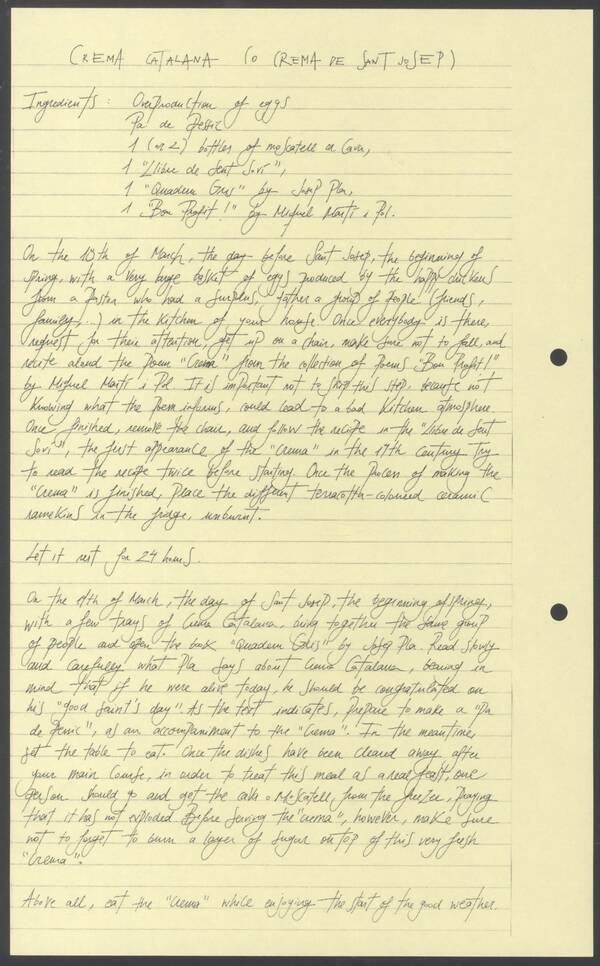 CREMA CATALANA (O CREMA DE SANT JOSEP)
Ingredients: Overproduction of eggs
Pa de Pessic
1 (or 2) bottles of moscatell or Cava,
1 "Llibre de Sent Soví",
1 "Quadern Gris" by Josep Pla,
1 "Bon Profit!" by Miquel Martí i Pol.
On the 18th of March, the day before Sant Josep, the beginning of
spring, with a very large basket of eggs produced by the happy chickens
from a who had a surplus, gather a group of people (friends,
family,...) in the kitchen of your house. Once everybody is there,
request for their attention, get up on a chair, make sure not to fall, and
recite aloud the poem "Crema" from the collection of poems "Bon Profit!"
by Miquel Martí i Pol. It is important not to skip this step, because not
knowing what the poem informs, could lead to a bad kitchen atmosphere.
Once finished, remove the chair, and follow the recipe in the "Llibre de Sent
Soví", the first appearance of the "crema" in the 14th century. Try
to read the recipe twice before starting. Once the process of making the
"crema" is finished, place the different terracotta-coloured ceramic
ramekins in the fridge, unburnt.
Let it rest for 24 hours.
On the 19th of March, the day of Sant Josep, the beginning of spring,
with a few trays of Crema Catalana, bring together the same group
of people and open the book "Quadern Gris" by Josep Pla. Read slowly
and carefully what Pla says about Crema Catalana, bearing in
mind that if he were alive today, he should be congratulated on
his "good saint's day". As the text indicates, prepare to make a "Pa
de Pessic", as an accompaniment to the "Crema". In the meantime,
set the table to eat. Once the dishes have been cleared away after
your main course, in order to treat this meal as a real feast, one
person should go and get the cava o Moscatell from the freezer, praying
that it has not exploded. Before serving the "crema", however, make sure
not to forget to burn a layer of sugar on top of this very fresh
"Crema".
Above all, eat the "Crema" while enjoying the start of the good weather.